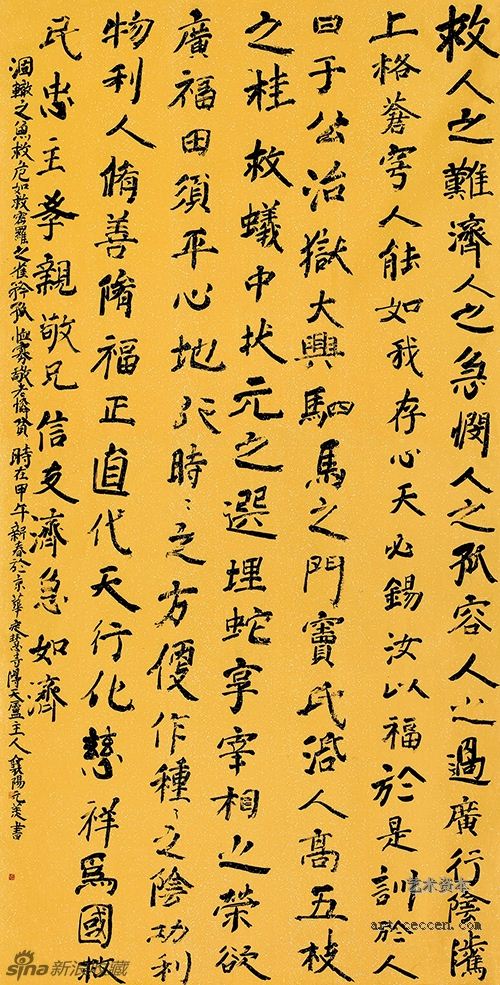 救人之難濟人之急憫人之孤容人之過廣行陰騭
上格蒼穹人能如我存心天必錫汝以福於是訓於人
曰于公治獄大興駟馬之門竇氏濟人高五枝
之桂救蟻中狀元之選埋蛇享宰相之榮欲
廣福田須平心地行時々之方便作種々之陰功利
物利人脩善脩福正直代天行化慈祥爲國救
民忠主孝親敬兄信友濟急如濟
涸轍之魚救危如救密羅之雀矜孤恤寡敬老憐貧 時在甲午新春於京華定慧寺 天廬主人襄陽 書
艺术资本
art.ceccen.com
sina新浪收藏